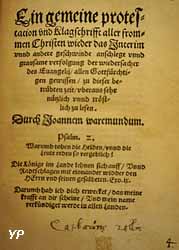 Ein gemeine protes-
tation und Klagschrifft aller from-
men Christen wieder das Interim
vnnd andere geschwinde anschlege vnnd
grausame verfolgung der wiedersacher
des Euangelij, allen Gottfürchti-
gen gewissen, zu dieser be-
trübten zeit, vberaus sehr
nützlich vnnd tröst-
lich zu lesen.
Durch Joannem waremundum.
Psalm. 2.
Warumb toben die Heiden, vnnd die
leute reden so vergeblich?
Die Könige im Lande lehnen sich auff, Vnnd
Radtschlagen mit einander widder den
HErrn vnd seinen gesalbeten. Exo. 9.
Darumb hab ich dich erweckt, das meine
krafft an dir scheine, Vnd mein name
verkündiget werde in allen Landen.
YP